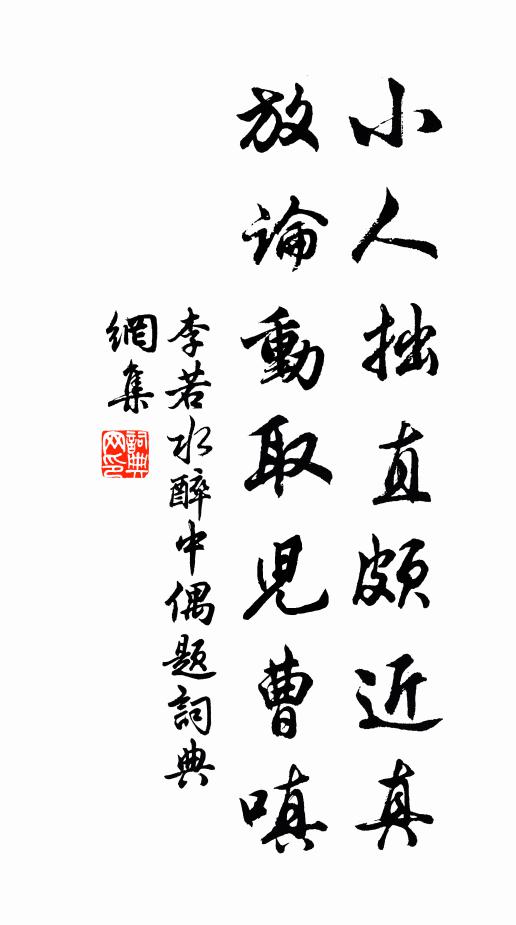 小人拙直頗近真
放論動取兒曹嗔
李若水醉中偶題詞典
網集
詞典網印